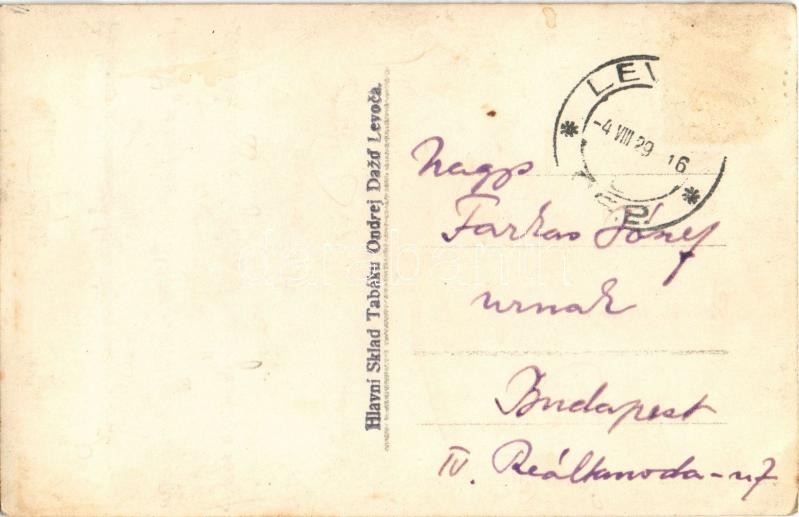 Hlavní Sklad Tabáku Ondrej Dažď Levoča.
LEV
-4 VIII 29 16
Nagys
Farkas József
urnak
Budapest
IV. Reáltanoda-u 7